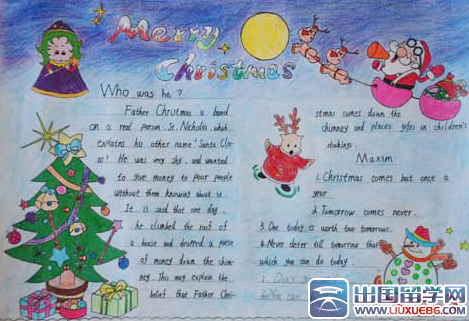 Merry
Christmas
Who was he?
Father Christmas is based
on a real person, St. Nicholas, which
explains his other name 'Santa Cla-
us'. He was very shy and wanted
to give money to poor people
without them knowing about it.
It is said that one day,
he climbed the roof of
a house and dropped a purse
of money down the chim-
ney. This may explain the
belief that Father Chri-
stmas comes down the
chimney and places gifts in children's
stokings.
Maxim
1. Christmas comes but once a
year
2. Tomorrow comes never.
3. One today is worth two tomorrow.
4. Never deser till timorrow that
which you can do today.
出国留学网
www.liuxue86.com